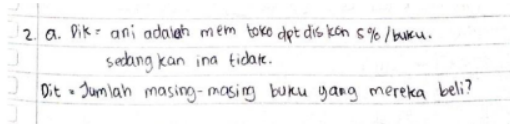 2. a. Dik = ani adalah mem toko dpt diskon 5%/buku.
sedangkan ina tidak.
Dit = Jumlah masing-masing buku yang mereka beli?